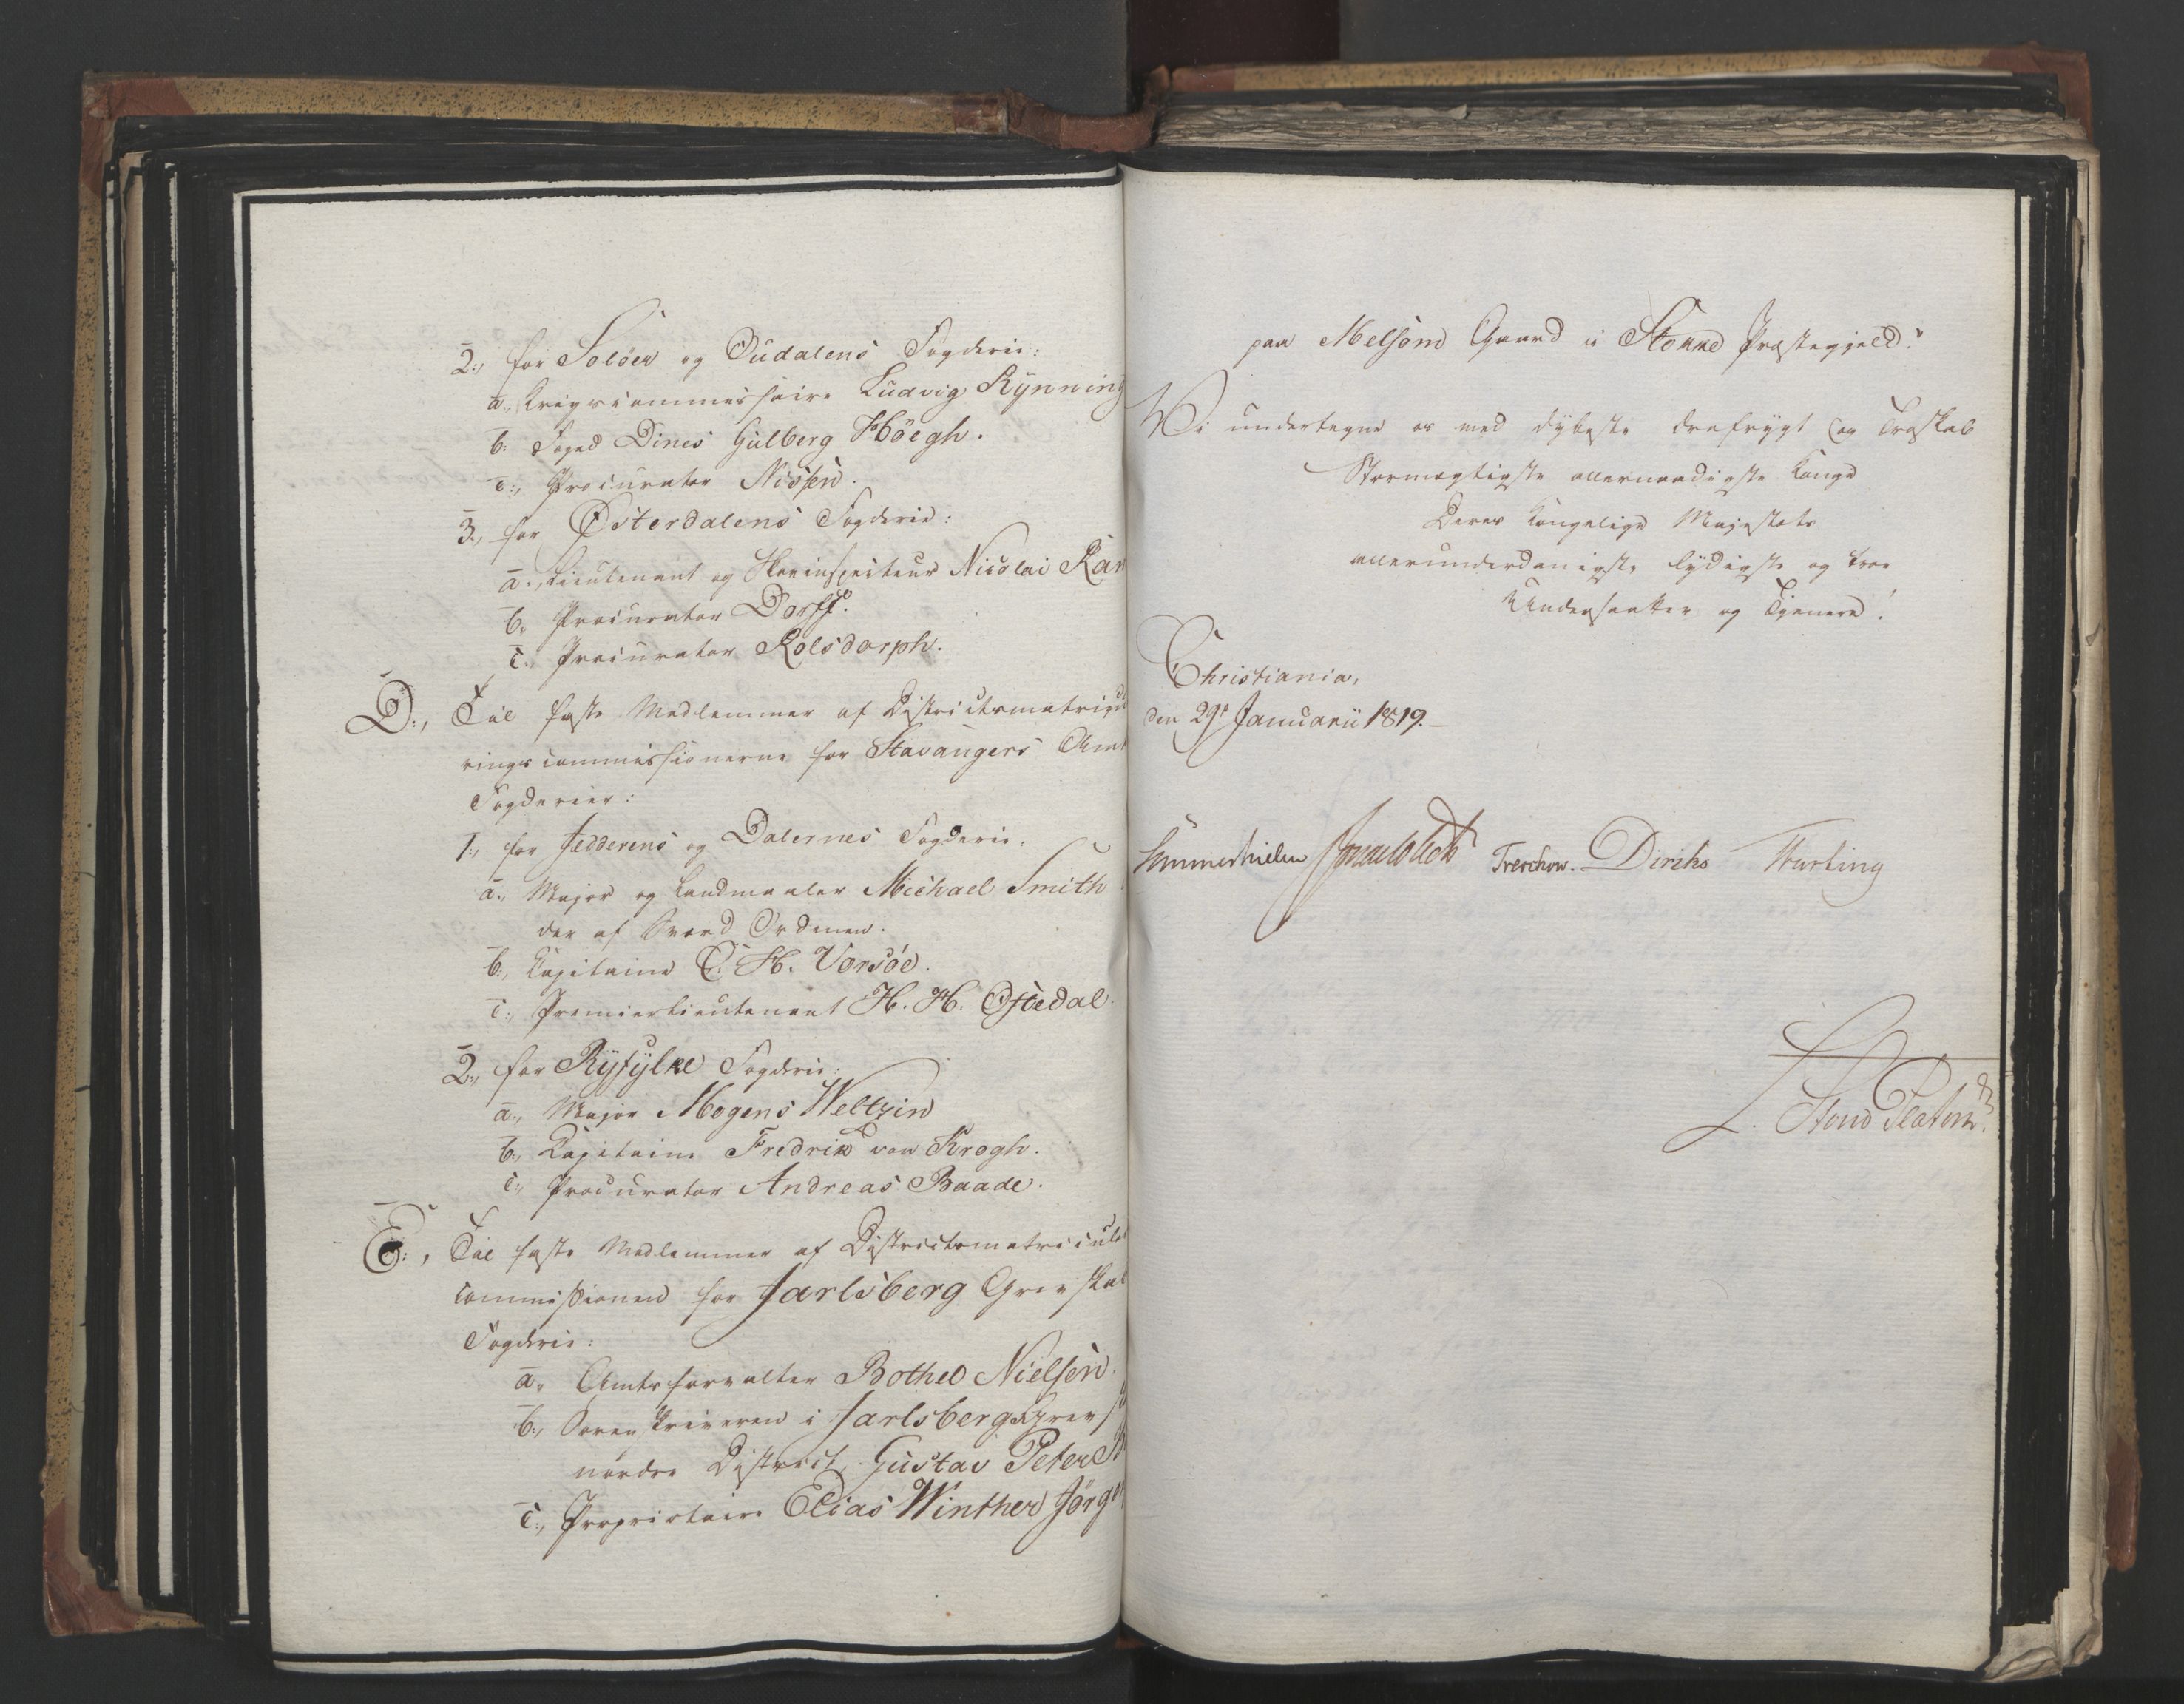 2., for Soløer og Oudalens Fogderie:
a., Krigscommissaire Ludvig Rynning
b: Foged Dines Gulberg Høegh.
c:, Procurator Nissen.
3., for Østerdalens Fogderie:
a., Lieutenant og Skovinspecteur Nicolai
b., Procurator Dorff.
c:, Procurator Rolsdorph.
D:, Til faste Medlemmer af
ringscommissionerne for Stavangers Amt
Fogderier:
1:, for Jedderens og Dalernes Fogderie.
a:, Major og Landmaaler Michael Smith
der af Sværd Ordenen.
b:, Capitaine C. H. Vorsøe.
c:, Premierlieutenant H. H. Oftedal.
2:, for Ryfylke Fogderie:
a., Major Mogens Weltzin
b:, Capitaine Fredrik von Krogh.
c:, Procurator Andreas Baade.
E:, Til faste Medlemmer af
commissionen for Jarlsberg
Fogderie:
a., Amtsforvalter Bothed Nielsen.
b:, Sorenskriveren i Jarlsbergs
nordre District, Gustav Peter
c:, Proprietaire Elias Winther
paa Melsom Gaard i Stokke Præstegjeld."
Vi undertegne os med dybeste Ærefrygt og Troskab
Stormægtigste allernaadigste Konge
Deres Kongelige Majestæts
allerunderdanigste lydigste og troe
Undersaatter og Tjenere!
Christiania,
den 29de Januarii 1819.
Sommerhielm Treschow. Diriks